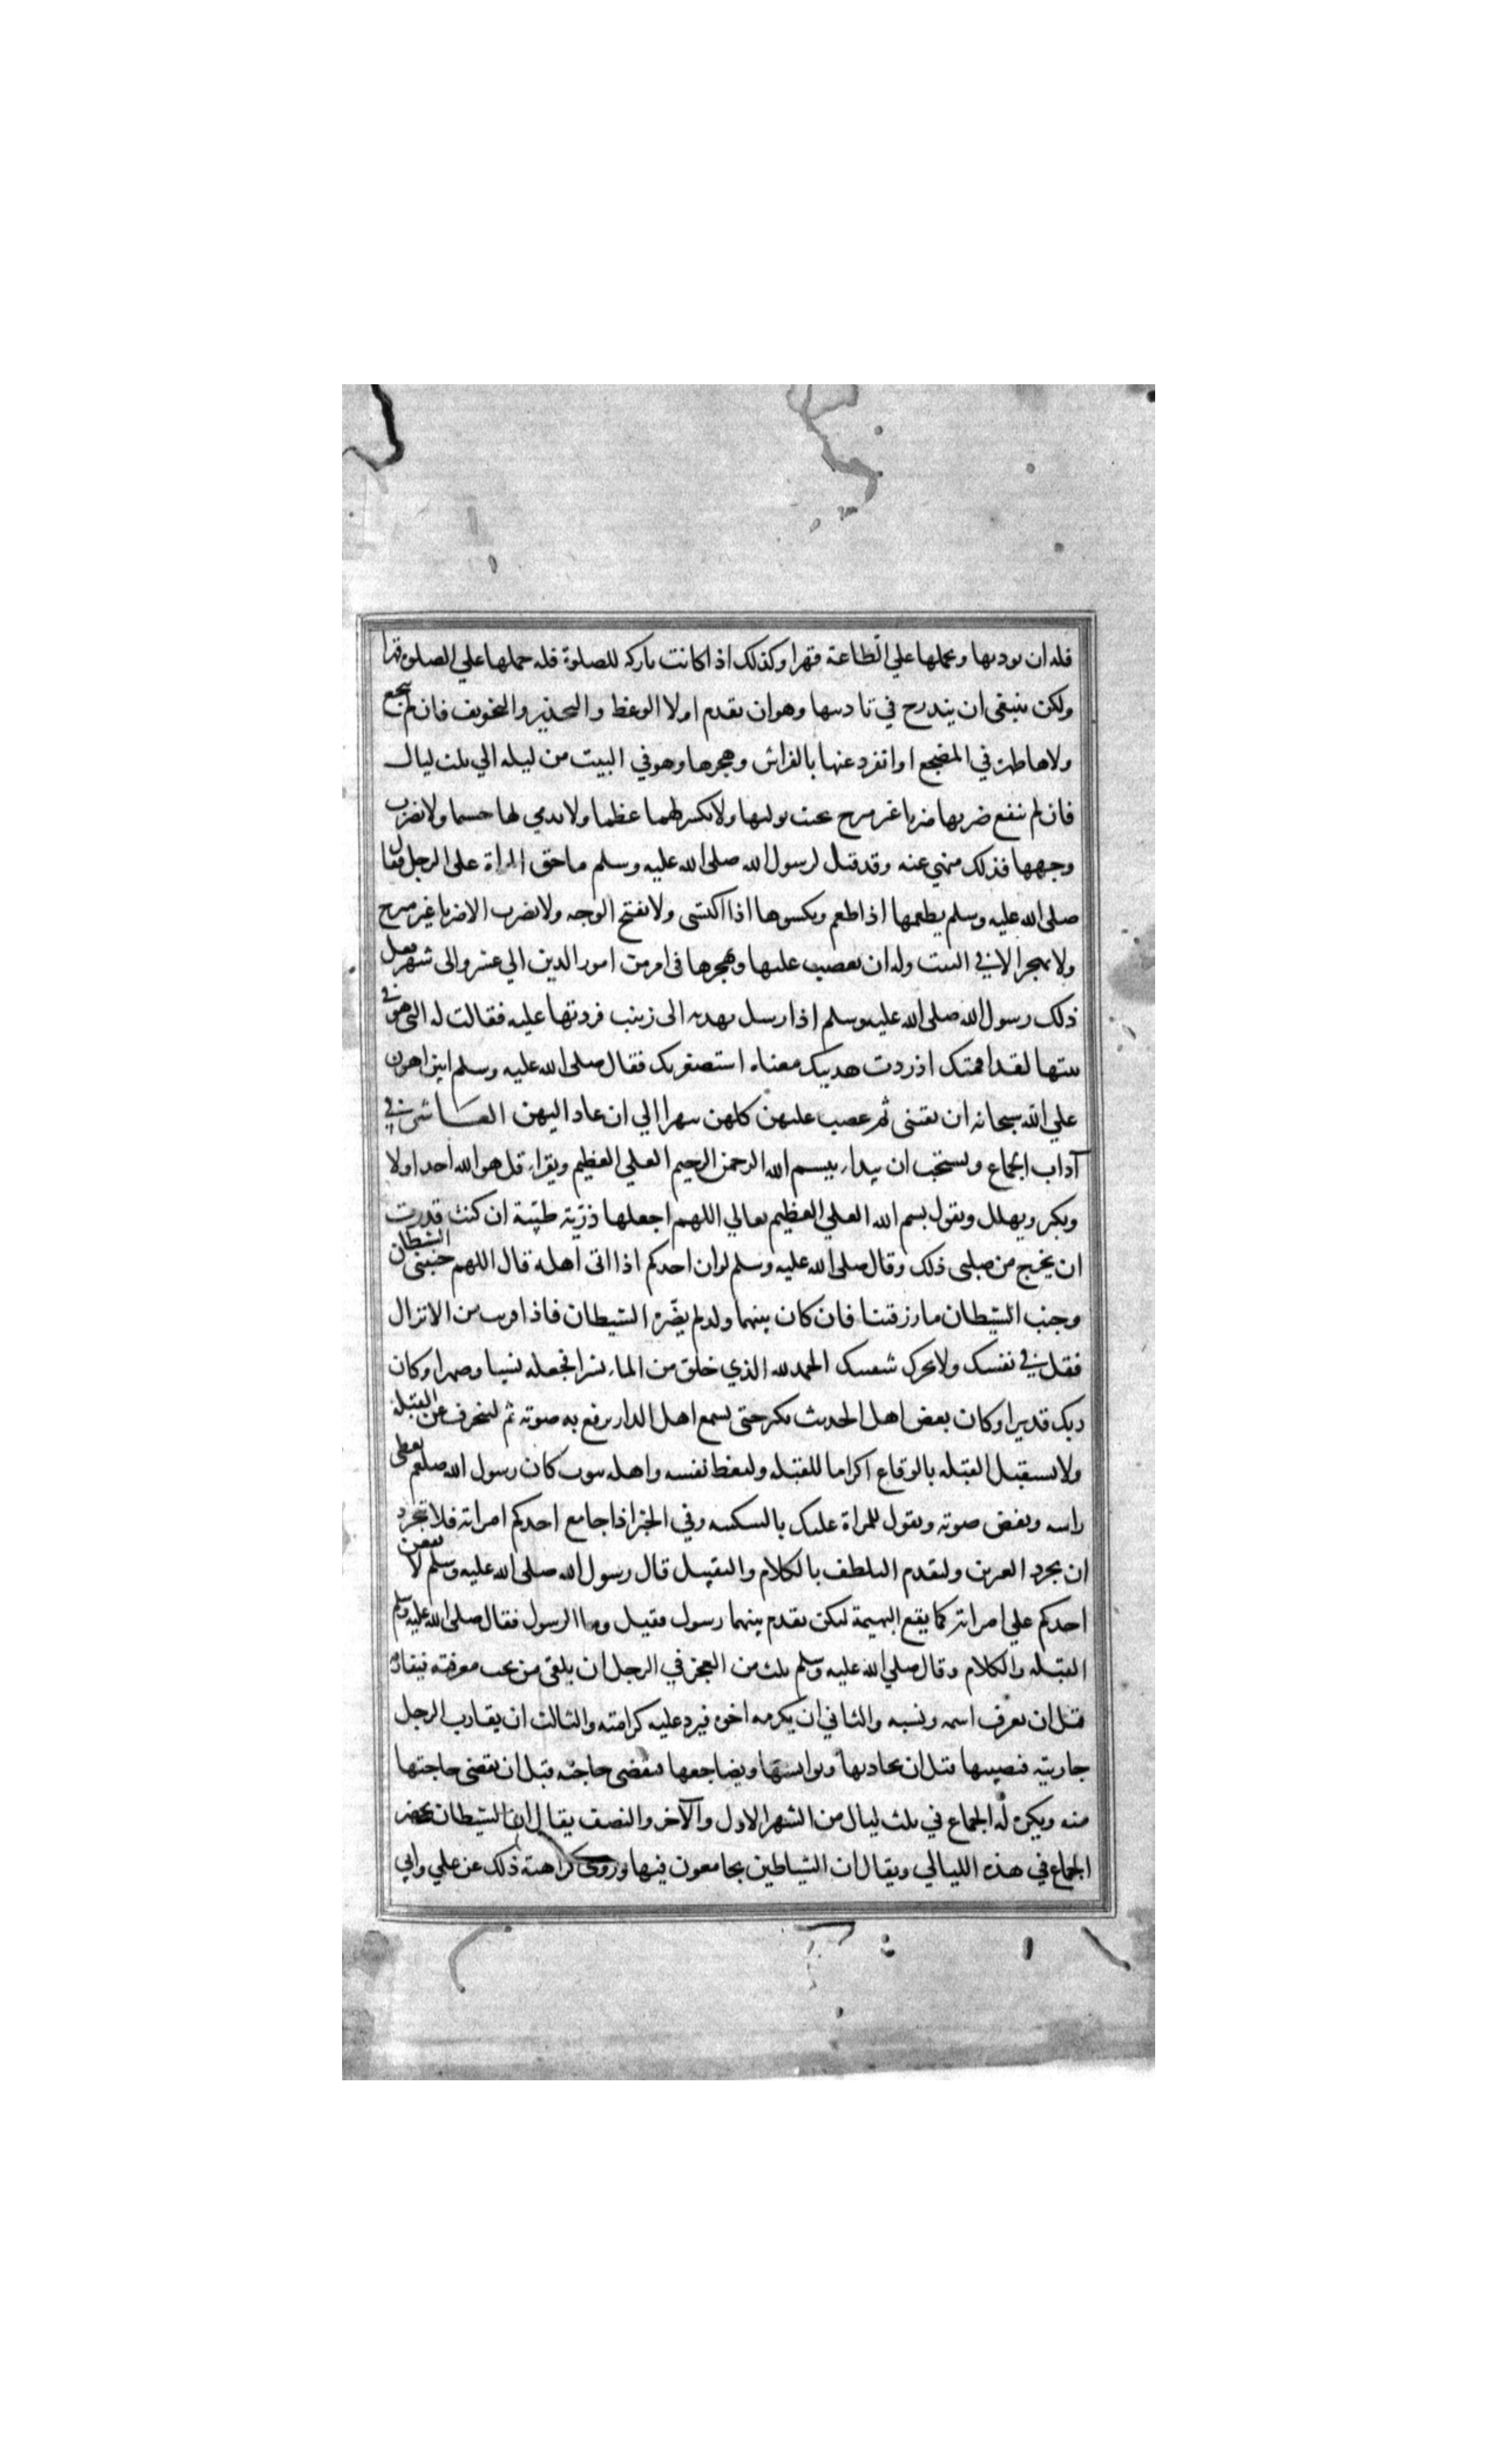 فله ان يوديها ويحملها علي الطاعة قهرا وكذلك اذا كانت تاركه للصلوة فله حملها علي الصلوة قهرا
ولكن ينبغى ان يتدرج في تاديبها وهو ان يقدم اولا الوعظ والتحذير والتخويف فان لم ينجع
ولاها ظهره في المضجع او انفرد عنها بالفراش وهجرها وهو في البيت من ليله الي ثلث ليال
فان لم ينفع ضربها ضربا غير مبرح بحيث يولمها ولا يكسر لهما عظما ولا يدمي لها جسما ولا يضرب
وجهها فذلك منهي عنه وقد قيل لرسول الله صلى الله عليه وسلم ما حق المراة على الرجل فقال
صلى الله عليه وسلم يطعمها اذا طعم ويكسوها اذا اكتسى ولا يقبح الوجه ولا يضرب الا ضربا غير مبرح
ولا يهجر الا في البيت وله ان يغضب عليها ويهجرها فى امر من امور الدين الي عشر والى شهر فعل
ذلك رسول الله صلى الله عليه وسلم اذ ارسل بهديه الى زينب فردتها عليه فقالت له التى هو في
بيتها لقد اقمتك اذ ردت هديتك معناه استصغرتك فقال صلى الله عليه وسلم انتن اهون
علي الله سبحانه ان يقمئنى ثم غضب عليهن كلهن شهرا الي ان عاد اليهن العاشر في
آداب الجماع ويستحب ان يبدا بيسم الله الرحمن الرحيم العلي العظيم ويقرا قل هو الله احد اولا
ويكبر ويهلل ويقول بسم الله العلي العظيم تعالي اللهم اجعلها ذرّية طيّبة ان كنت قدرت
ان يخرج من صلبى ذلك وقال صلى الله عليه وسلم لو ان احدكم اذا اتى اهله قال اللهم جنبنى الشيطان
وجنب الشيطان ما رزقتنا فان كان بينهما ولد لم يضّره الشيطان فاذا قربت من الانزال
فقل في نفسك ولا تحرك شفتيك الحمد لله الذي خلق من الماء بشرا فجعله نسبا وصهرا وكان
ربك قديرا وكان بعض اهل الحديث يكبر حتى يسمع اهل الدار برفع به صوته ثم لينحرف عن القبلة
ولا يستقبل القبله بالوقاع اكراما للقبله وليغط نفسه واهله بثوب كان رسول الله صلعم يغطى
راسه ويغض صوته ويقول للمراة عليك بالسكينه وفي الخبر اذا جامع احدكم امراته فلا تجرد
ان تجرد العرين وليقدم التلطف بالكلام والتقبيل قال رسول الله صلى الله عليه وسلم لا يقعن
احدكم علي امراته كما يقع البهيمة ليكن يقدم بينهما رسول فقيل وما الرسول فقال صلى الله عليه وسلم
القبله والكلام وقال صلي الله عليه وسلم ثلث من العجز في الرجل ان يلقى من يحب معرفته فيفارقه
قبل ان يعرف اسمه ونسبه والثاني ان يكرمه اخوه فيرد عليه كرامته والثالث ان يقارب الرجل
جاريته فيصيبها قبل ان يحادثها ويوانسها ويضاجعها فيقضى حاجته قبل ان تقضى حاجتها
منه ويكره له الجماع في ثلث ليال من الشهر الاول والآخر والنصف يقال ان الشيطان يحضر
الجماع في هذه الليالي ويقال ان الشياطين يجامعون فيها وروى كراهته ذلك عن علي وابي